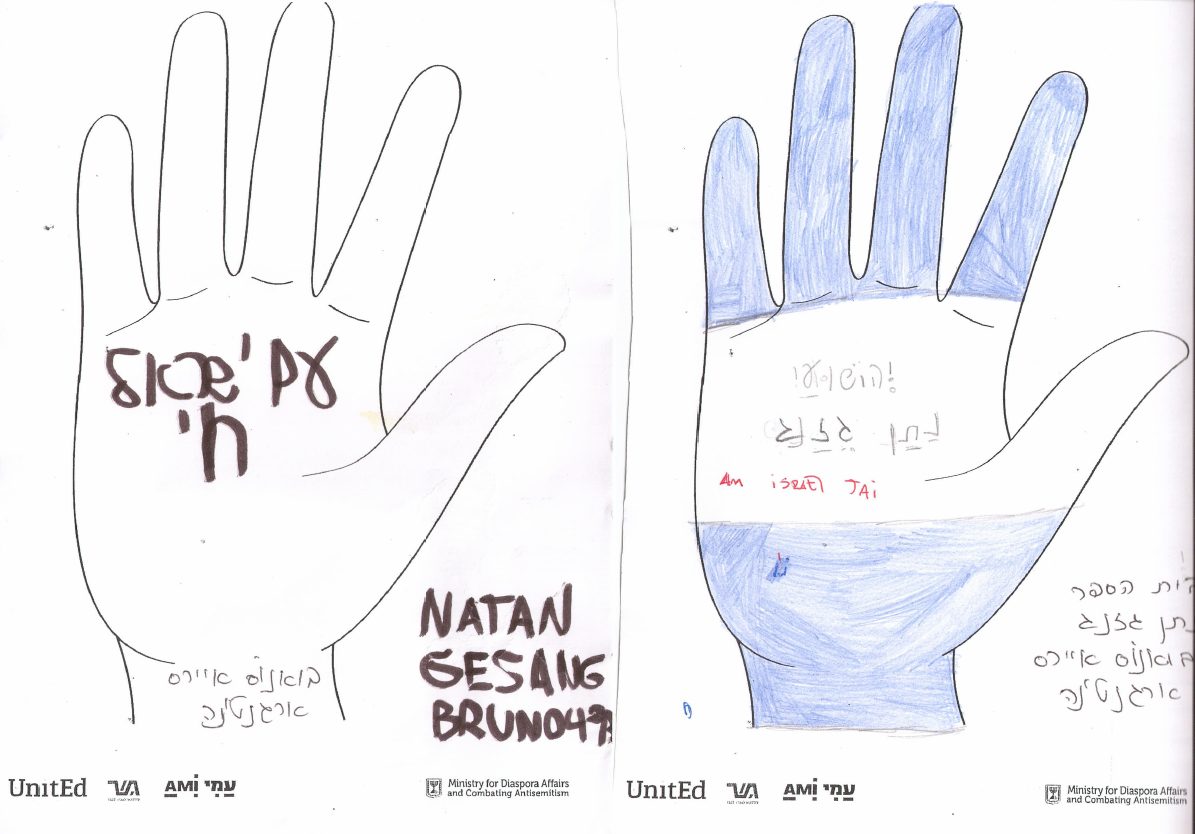 עם ישראל
חי
בואנוס איירס
ארגנטינה
NATAN
GESANG
BRUNO
UnitEd
עמי AMI
Ministry for Diaspora Affairs
and Combating Antisemitism
Am iSRAEl JAi
בית הספר
נתן גזנג
בואנוס איירס
ארגנטינה
UnitEd
עמי AMI
Ministry for Diaspora Affairs
and Combating Antisemitism